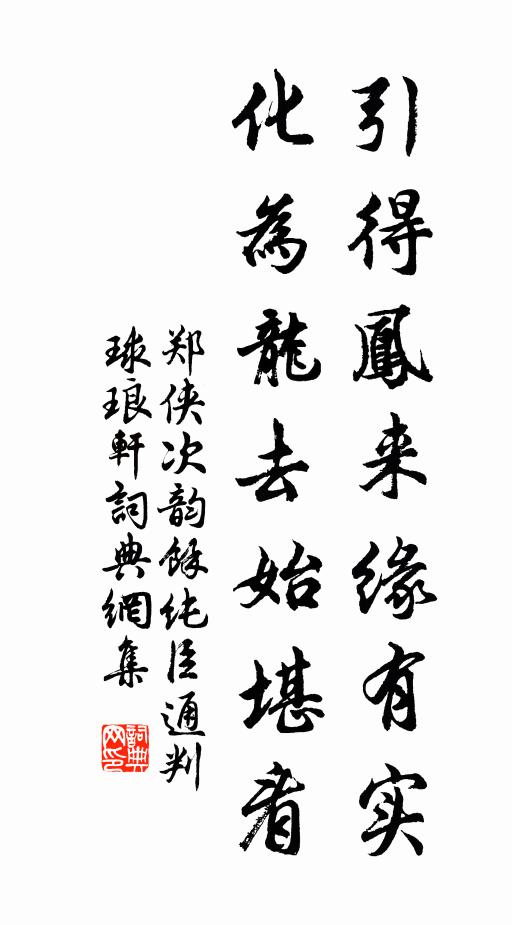 引得鳳来缘有实
化為龍去始堪看
郑侠次韵馀纯臣通判
球琅軒詞典網集
詞典
网印